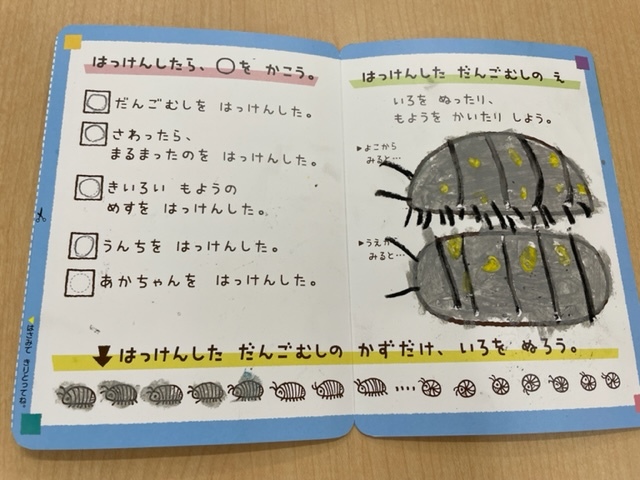 はっけんしたら、○を かこう。
だんごむしを はっけんした。
さわったら、
まるまったのを はっけんした。
きいろい もようの
めすを はっけんした。
うんちを はっけんした。
あかちゃんを はっけんした。
はっけんした だんごむしの え
いろを ぬったり、
もようを かいたり しよう。
▶よこから
みると…
▶うえか
みると…
はっけんした だんごむしの かずだけ、いろを ぬろう。